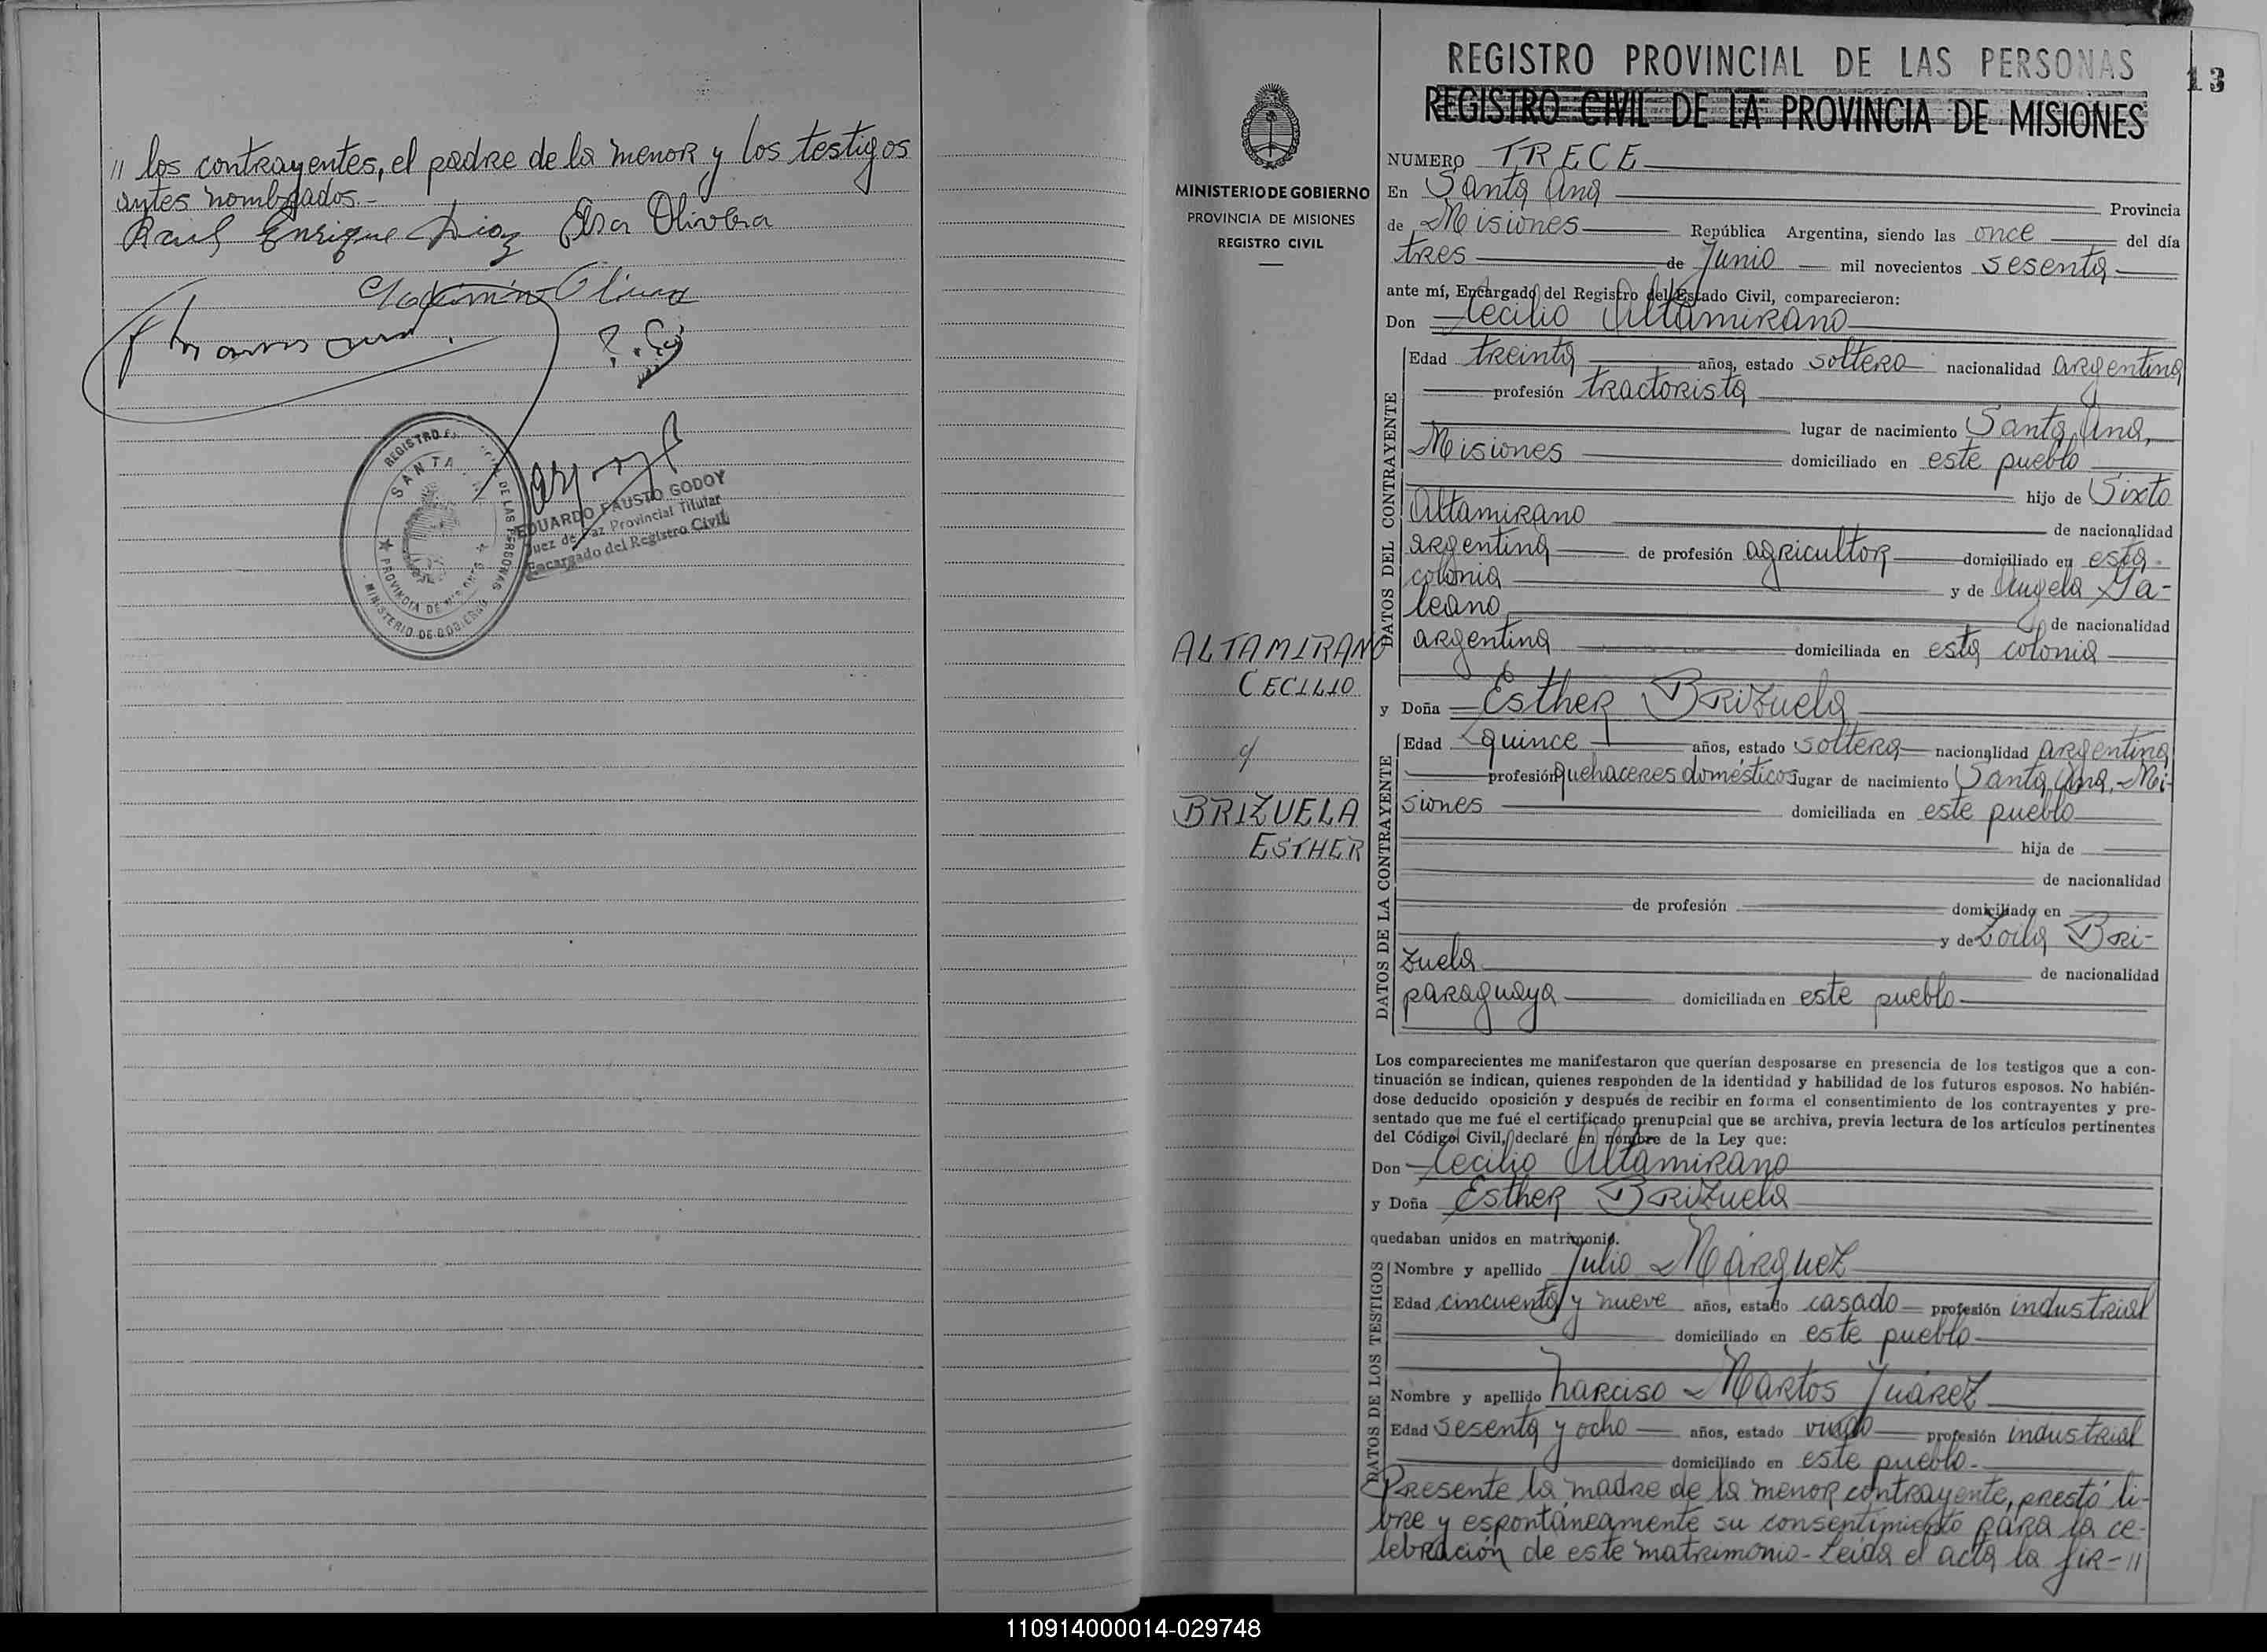 // los contrayentes, el padre de la menor y los testigos
antes nombrados.-
Raul Enrique Diaz Elsa Olivera
REGISTRO DE LAS PERSONAS
SANTA
PROVINCIA DE MISIONES
MINISTERIO DE GOBIERNO
EDUARDO FAUSTO GODOY
Juez de Paz Provincial Titular
Encargado del Registro Civil
MINISTERIO DE GOBIERNO
PROVINCIA DE MISIONES
REGISTRO CIVIL
ALTAMIRANO
CECILIO
c/
BRIZUELA
ESTHER
REGISTRO PROVINCIAL DE LAS PERSONAS
13
REGISTRO CIVIL DE LA PROVINCIA DE MISIONES
NUMERO TRECE
En Santa Ana Provincia
de Misiones República Argentina, siendo las once del día
tres de Junio mil novecientos sesenta
ante mí, Encargado del Registro del Estado Civil, comparecieron:
Don Cecilio Altamirano
DATOS DEL CONTRAYENTE
Edad treinta años, estado soltero nacionalidad argentina
profesión tractorista
lugar de nacimiento Santa Ana,
Misiones domiciliado en este pueblo
hijo de Sixto
Altamirano de nacionalidad
argentina de profesión agricultor domiciliado en esta
colonia y de Angela Ga-
leano de nacionalidad
argentina domiciliada en esta colonia
y Doña Esther Brizuela
DATOS DE LA CONTRAYENTE
Edad quince años, estado soltera nacionalidad argentina
profesión quehaceres domésticos lugar de nacimiento Santa Ana, Mi-
siones domiciliada en este pueblo
hija de
de nacionalidad
de profesión domiciliado en
y de Zoila Bri-
zuela de nacionalidad
paraguaya domiciliada en este pueblo
Los comparecientes me manifestaron que querían desposarse en presencia de los testigos que a con-
tinuación se indican, quienes responden de la identidad y habilidad de los futuros esposos. No habién-
dose deducido oposición y después de recibir en forma el consentimiento de los contrayentes y pre-
sentado que me fué el certificado prenupcial que se archiva, previa lectura de los artículos pertinentes
del Código Civil, declaré en nombre de la Ley que:
Don Cecilio Altamirano
y Doña Esther Brizuela
quedaban unidos en matrimonio.
DATOS DE LOS TESTIGOS
Nombre y apellido Julio Márquez
Edad cincuenta y nueve años, estado casado profesión industrial
domiciliado en este pueblo
Nombre y apellido Narciso Martos Juárez
Edad sesenta y ocho años, estado viudo profesión industrial
domiciliado en este pueblo.-
Presente la madre de la menor contrayente, prestó li-
bre y espontáneamente su consentimiento para la ce-
lebración de este matrimonio- Leida el acta la fir-//
110914000014-029748